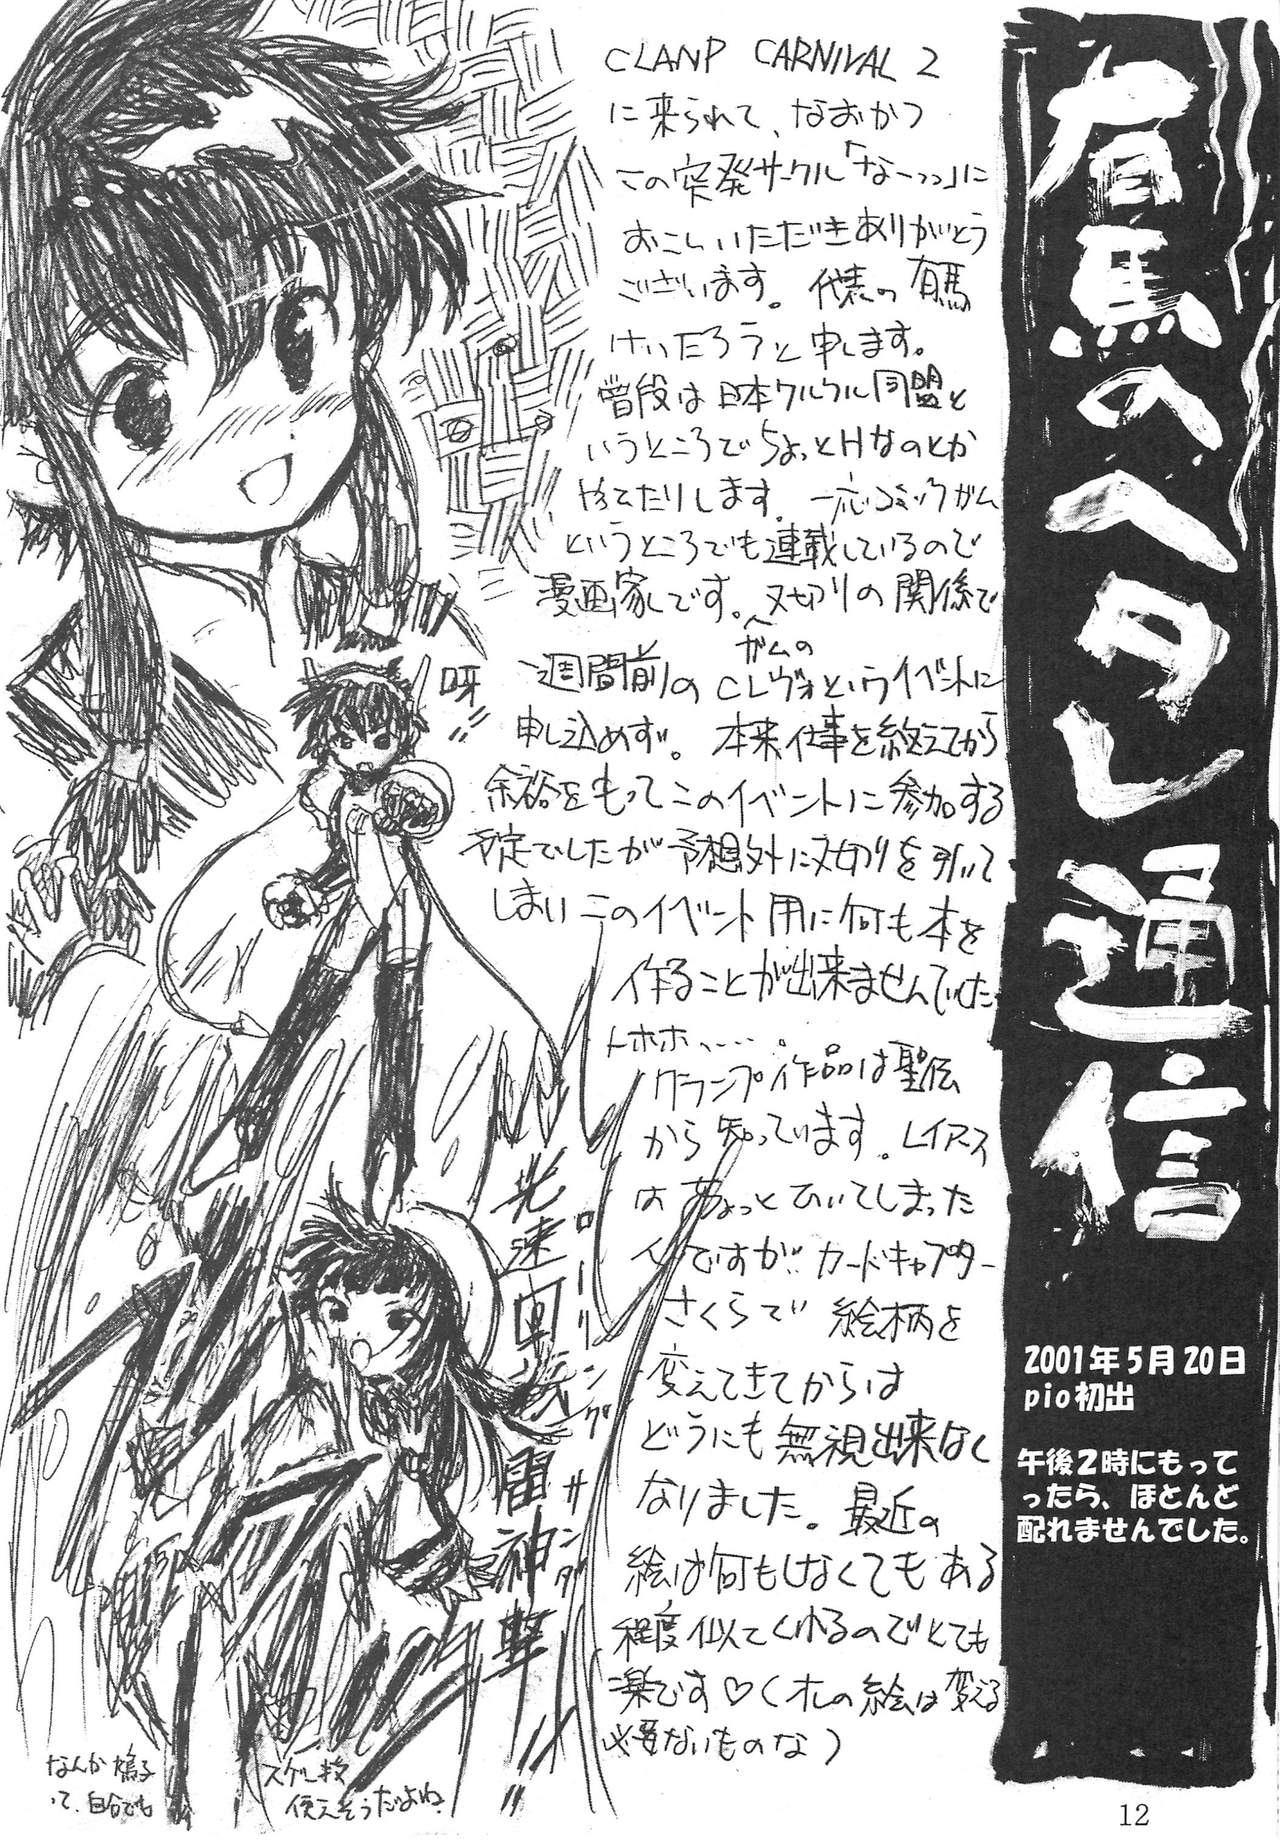 有馬のヘタレ通信
2001年5月20日
pio初出
午後2時にもって
ったら、ほとんど
配れませんでした。
CLANP CARNIVAL 2
に来られて、なおかつ
この突発サークル「なーっっ」に
おこしいただきありがとう
ございます。代表の有馬
けいたろうと申します。
普段は日本クルクル同盟と
いうところでちょっとHなのとか
やてたりします。一応コミックガム
というところでも連載しているので
漫画家です。〆切りの関係で
ガムの
一週間前のCLヴォというイベントに
申し込めず。本来仕事を終えてから
余裕をもってこのイベントに参加する
予定でしたが予想外に〆切りを引いて
しまいこのイベント用に何も本を
作ることが出来ませんでした
トホホ、・・・。
クランプ作品は聖伝
から知っています。レイアース
はちょっとひいてしまった
んですが、カードキャプター
さくらで絵柄を
変えてきてからは
どうにも無視出来なく
なりました。最近の
絵は何もしなくてもある
程度似てくれるのでとても
楽です♡(オレの絵は変える
必要ないものな)
呀!!
光速回転雷神撃!!
ローリングサンダー
なんか鳩子
って、自分でも
スゲし技
使えそうだよね。
12